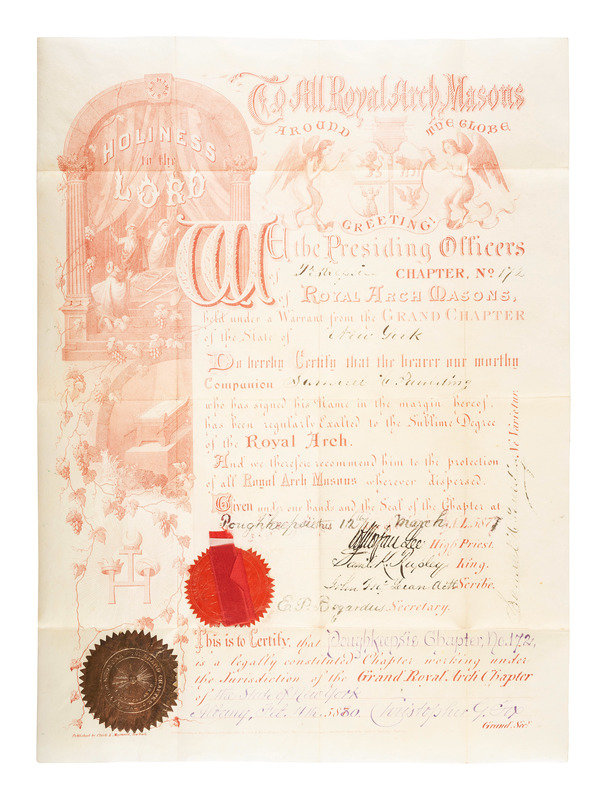 HOLINESS
to the
LORD
To All Royal Arch Masons
AROUND THE GLOBE
GREETING!
WE, the Presiding Officers
of CHAPTER, No. 172
of ROYAL ARCH MASONS,
held under a Warrant from the GRAND CHAPTER
of the State of New York
Do hereby Certify that the bearer our worthy
Companion
who has signed his Name in the margin hereof,
has been regularly Exalted to the Sublime Degree
of the Royal Arch.
And we therefore recommend him to the protection
of all Royal Arch Masons wherever dispersed.
Given under our hands and the Seal of the Chapter at
Poughkeepsie this 12th March A.L. 587
High Priest.
King.
Scribe.
E. P. Bogardus Secretary.
Ne Varietur
This is to Certify, that Poughkeepsie Chapter, No. 172,
is a legally constituted Chapter working under
the Jurisdiction of the Grand Royal Arch Chapter
of the State of New York
Albany, 5880. Christopher G. Fox
Grand Sec.
Published by